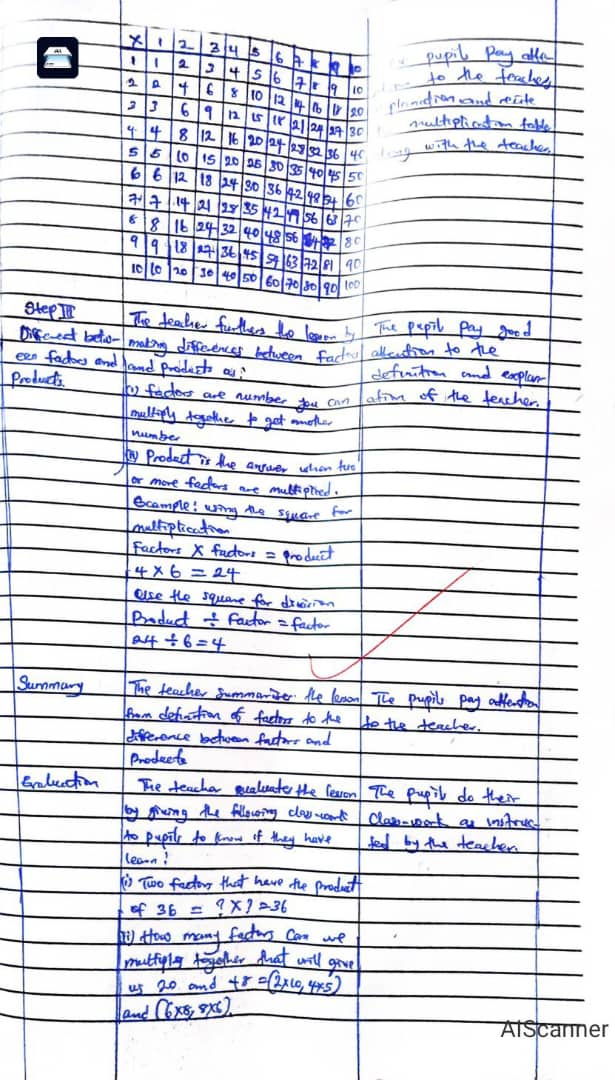 X 1 2 3 4 5 6 7 8 9 10
1 1 2 3 4 5 6 7 8 9 10
2 2 4 6 8 10 12 14 16 18 20
3 3 6 9 12 15 18 21 24 27 30
4 4 8 12 16 20 24 28 32 36 40
5 5 10 15 20 25 30 35 40 45 50
6 6 12 18 24 30 36 42 48 54 60
7 7 14 21 28 35 42 49 56 63 70
8 8 16 24 32 40 48 56 80
9 9 18 27 36 45 54 63 72 81 90
10 10 20 30 40 50 60 70 80 90 100
pupils pay atten
to the teaches
and recite
multiplication table
with the teacher
Step III
Different betw-
een factors and
Products.
The teacher furthers the lesson by
making differences between factors
and products as:
(i) factors are number you can
multiply together to get another
number
(ii) Product is the answer when two
or more factors are multiplied.
Example: using the square for
multiplication
Factors X factors = product
4 X 6 = 24
Use the square for division
Product ÷ Factor = factor
24 ÷ 6 = 4
The pupils pay good
attention to the
definition and explan
ation of the teacher.
Summary
The teacher summarizes the lesson
from definition of factors to the
difference between factors and
Products
The pupils pay attention
to the teacher.
Evaluation
The teacher evaluates the lesson
by giving the following class-work
to pupils to know if they have
learn:
(i) Two factors that have the product
of 36 = ? X ? = 36
(ii) How many factors can we
multiply together that will give
us 20 and 48 = (2x10, 4x5)
and (6x8, 8x6).
The pupils do their
Class-work as instruc-
ted by the teacher.
AIScanner